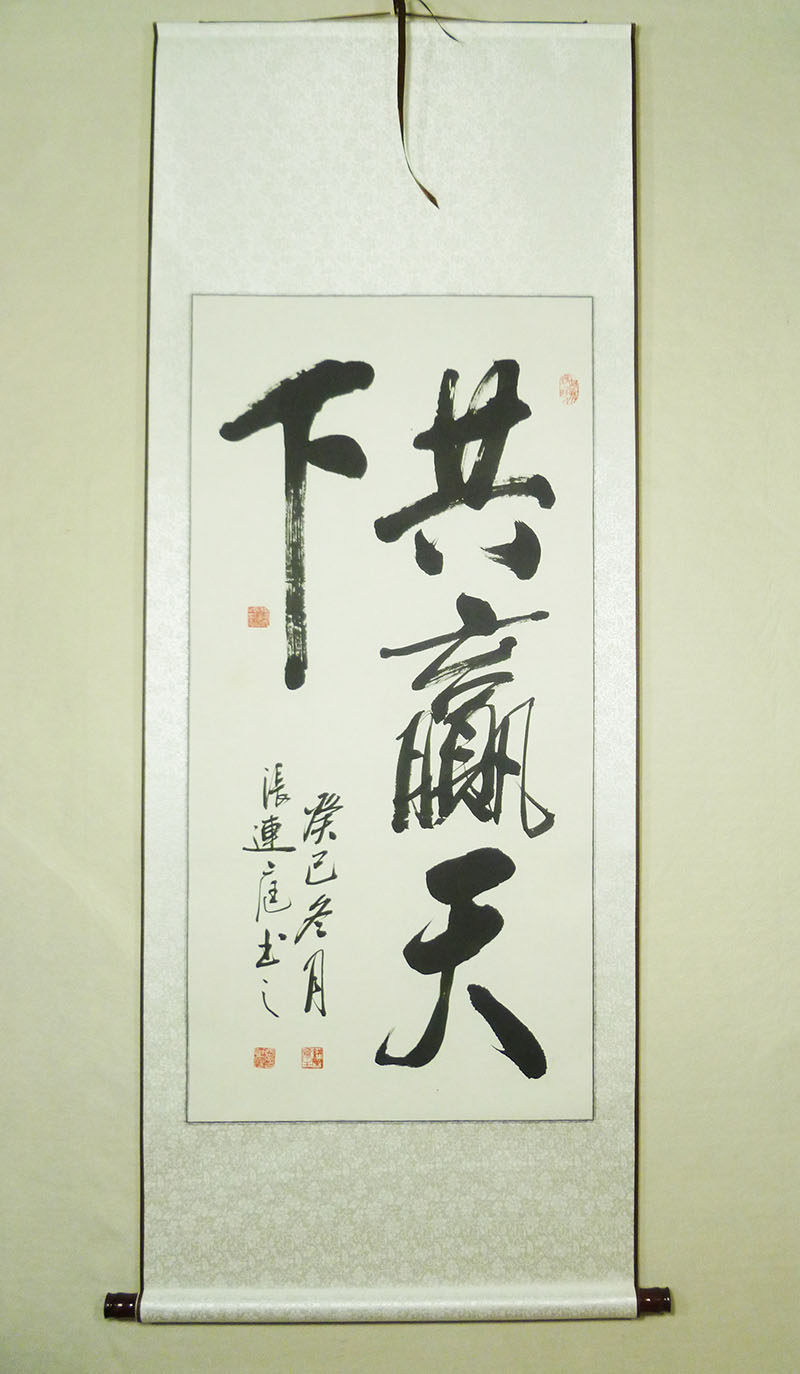 共赢天
下
癸巳冬月
張連庭书之